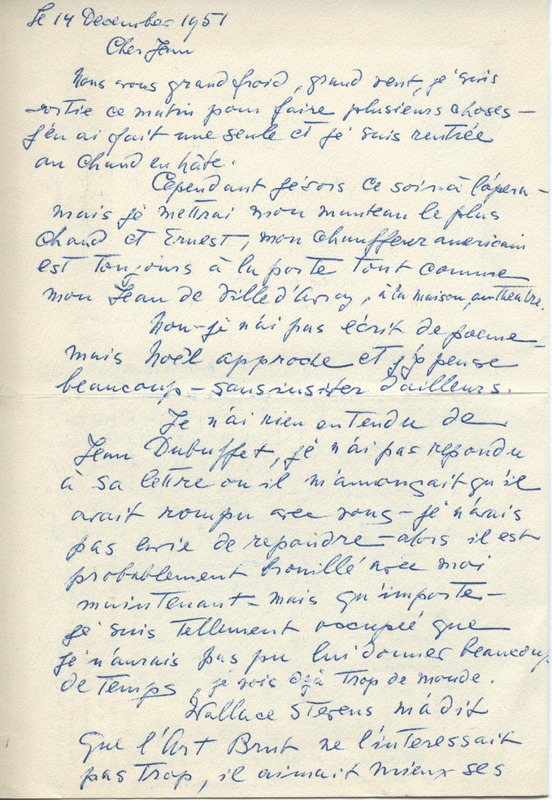 Le 14 December 1951
Cher Jean
Nous avons grand froid, grand vent, je suis
sortie ce matin pour faire plusieurs choses —
j'en ai fait une seule et je suis rentrée
au chaud en hâte.
Cependant je sors ce soir à l'opera —
mais je mettrai mon manteau le plus
chaud et Ernest, mon chauffeur americain
est toujours à la porte tout comme
mon Jean de Ville d'Avray, à la maison, au theatre.
Non – je n'ai pas écrit de poeme —
mais Noël approche et j'y pense
beaucoup – sans insister d'ailleurs.
Je n'ai rien entendu de
Jean Dubuffet, je n'ai pas repondu
à sa lettre ou il m'annonçait qu'il
avait rompu avec vous – je n'avais
pas envie de repondre – alors il est
probablement brouillé avec moi
maintenant – mais qu'importe –
je suis tellement occupée que
je n'aurais pas pu lui donner beaucoup
de temps, je vois déjà trop de monde.
Wallace Stevens m'a dit
que l'Art Brut ne l'interessait
pas trop, il aimait mieux ses